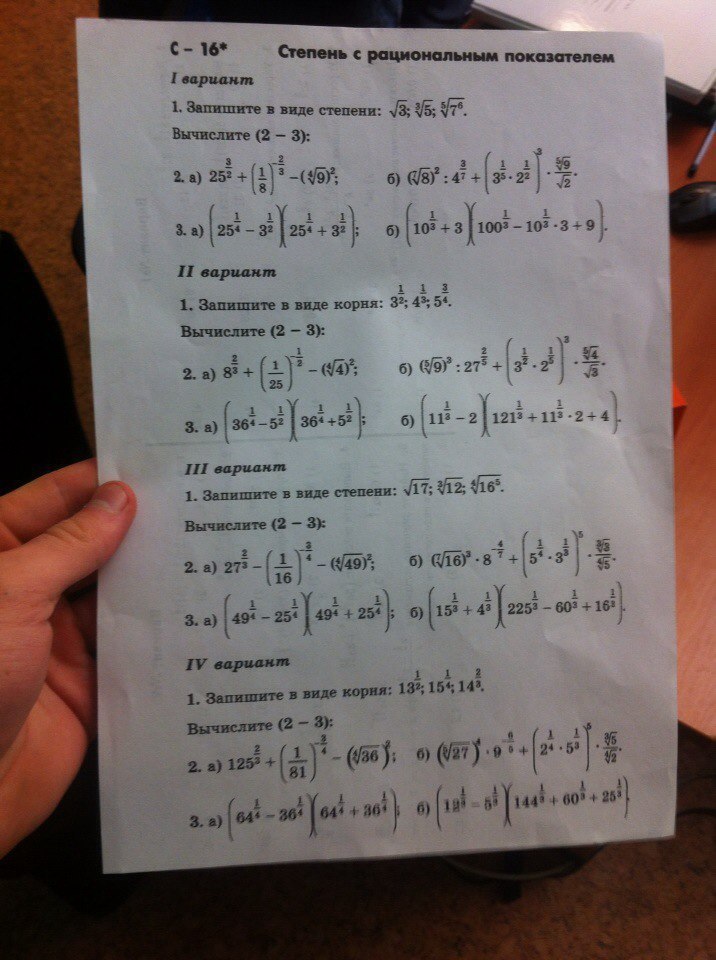 С – 16* Степень с рациональным показателем
I вариант
1. Запишите в виде степени: √3; ∛5; ⁵√7⁶.
Вычислите (2 – 3):
2. а) 25^(3/2) + (1/8)^(-2/3) – (⁴√9)²; б) (⁷√8)² : 4^(3/7) + (3^(1/5) · 2^(1/2))³ · ⁵√9/√2.
3. а) (25^(1/4) – 3^(1/2))(25^(1/4) + 3^(1/2)); б) (10^(1/3) + 3)(100^(1/3) – 10^(1/3) · 3 + 9).
II вариант
1. Запишите в виде корня: 3^(1/2); 4^(1/3); 5^(3/4).
Вычислите (2 – 3):
2. а) 8^(2/3) + (1/25)^(-1/2) – (⁴√4)²; б) (⁵√9)³ : 27^(2/5) + (3^(1/2) · 2^(1/5))³ · ⁵√4/√3.
3. а) (36^(1/4) – 5^(1/2))(36^(1/4) + 5^(1/2)); б) (11^(1/3) – 2)(121^(1/3) + 11^(1/3) · 2 + 4).
III вариант
1. Запишите в виде степени: √17; ∛12; ⁴√16⁵.
Вычислите (2 – 3):
2. а) 27^(2/3) – (1/16)^(-3/4) – (⁴√49)²; б) (⁷√16)³ · 8^(-4/7) + (5^(1/4) · 3^(1/3))⁵ · ∛3/⁴√5.
3. а) (49^(1/4) – 25^(1/4))(49^(1/4) + 25^(1/4)); б) (15^(1/3) + 4^(1/3))(225^(1/3) – 60^(1/3) + 16^(1/3)).
IV вариант
1. Запишите в виде корня: 13^(1/2); 15^(1/4); 14^(2/3).
Вычислите (2 – 3):
2. а) 125^(2/3) + (1/81)^(-3/4) – (⁴√36)²; б) (⁵√27)⁴ · 9^(-6/5) + (2^(1/4) · 5^(1/3))⁵ · ∛5/⁴√2.
3. а) (64^(1/4) – 36^(1/4))(64^(1/4) + 36^(1/4)); б) (12^(1/3) – 5^(1/3))(144^(1/3) + 60^(1/3) + 25^(1/3)).